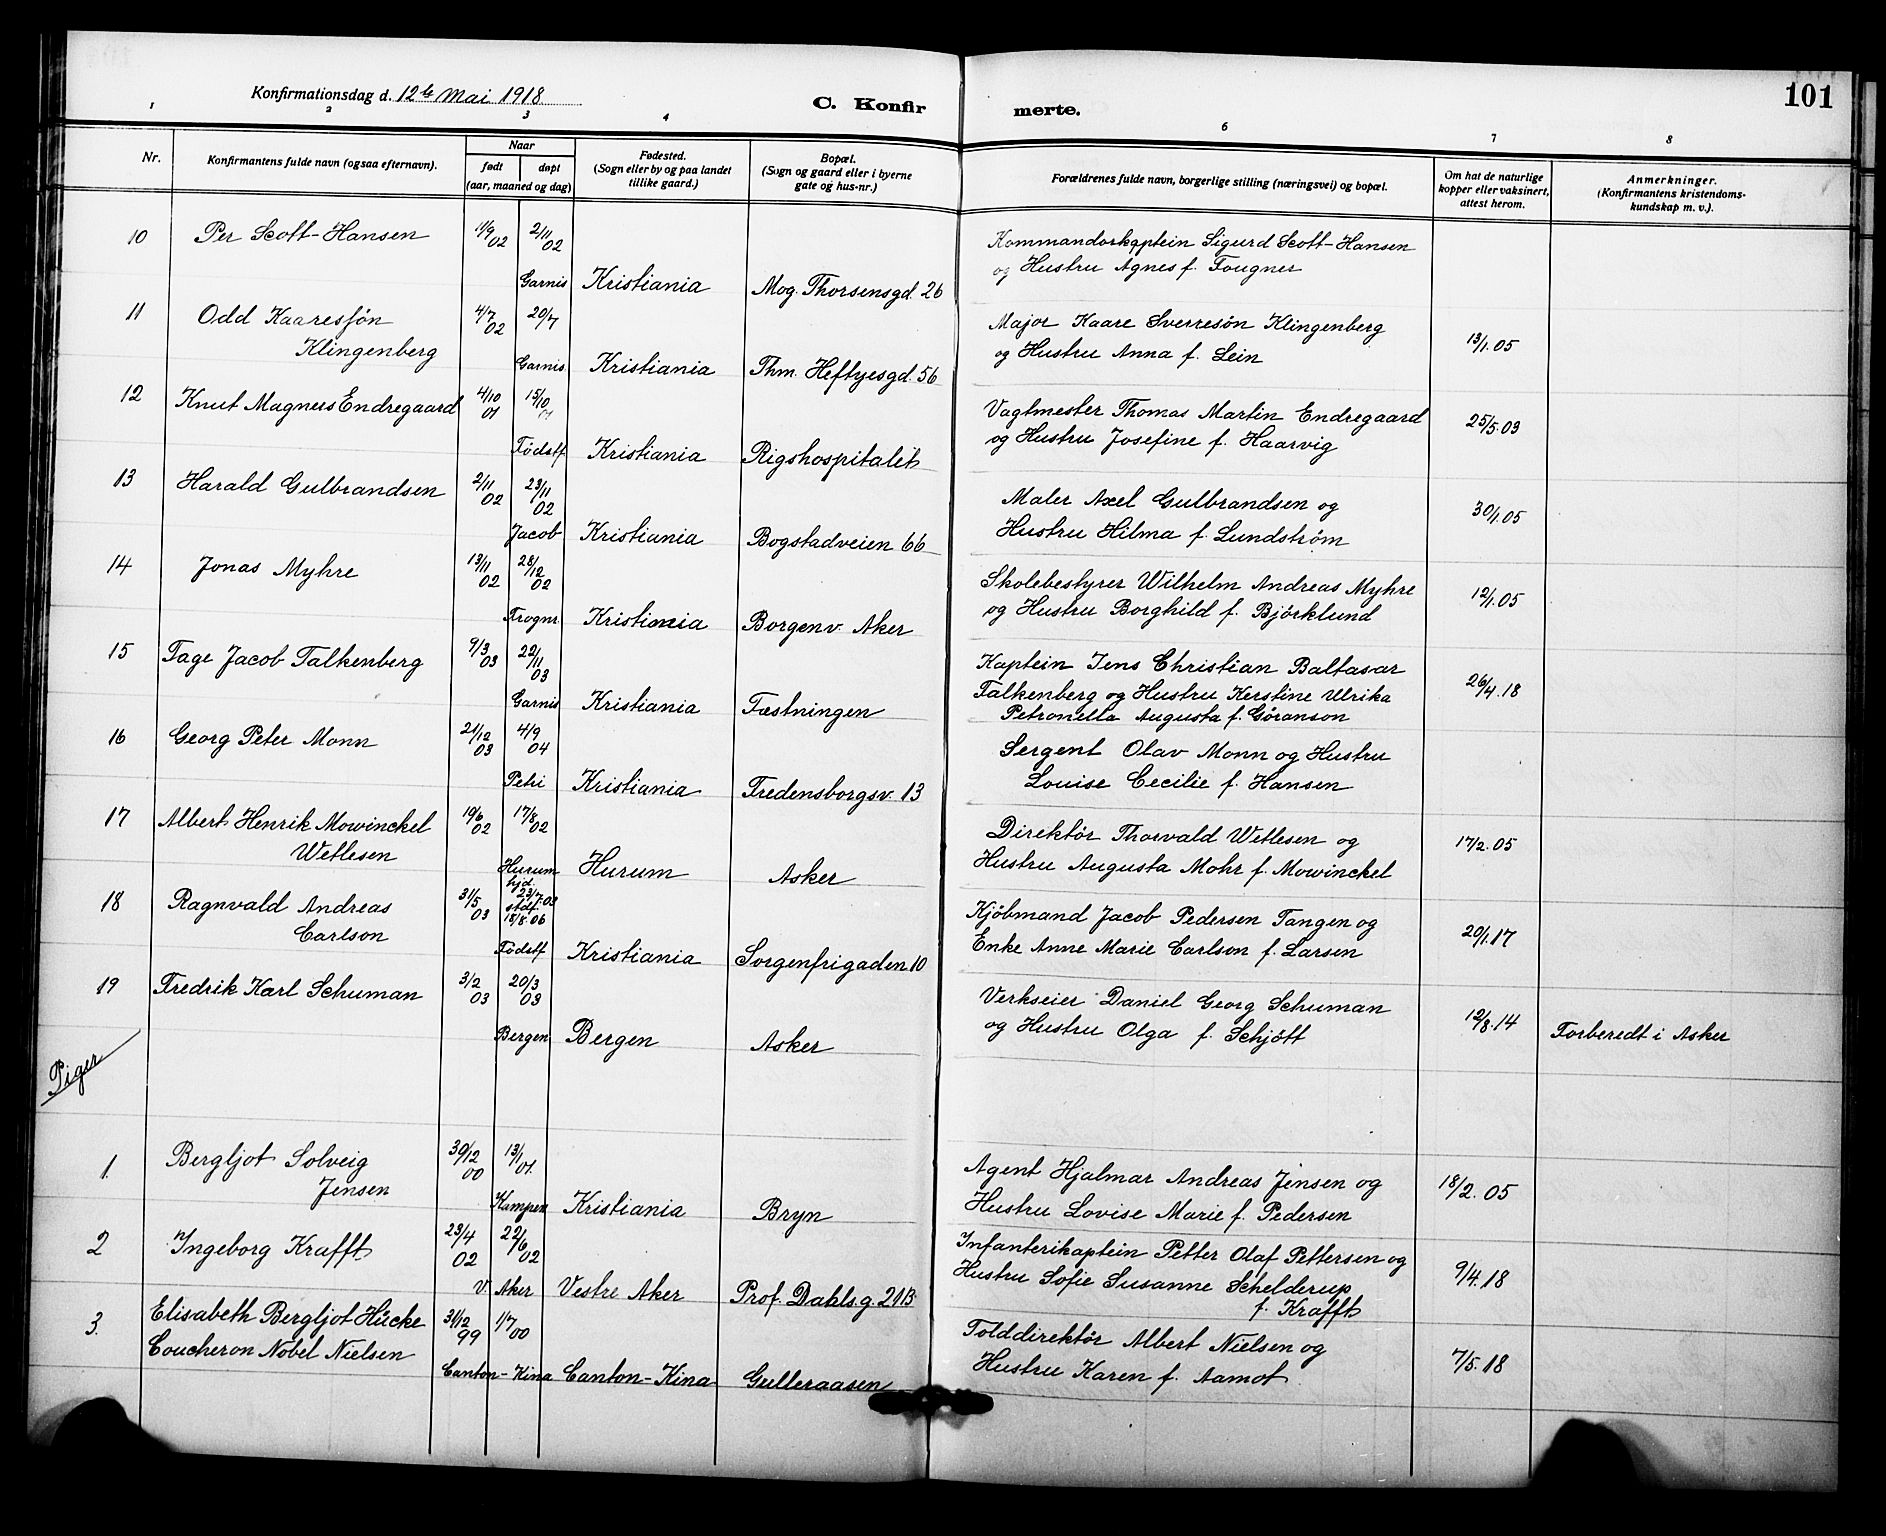 Konfirmationsdag d. 12te Mai 1918
C. Konfir merte.
101
1 2 3 4 6 7 8
Nr.
Konfirmantens fulde navn (ogsaa efternavn).
Naar
født døpt
(aar, maaned og dag)
Fødested.
(Sogn eller by og paa landet
tillike gaard.)
Bopæl.
(Sogn og gaard eller i byerne
gate og hus-nr.)
Forældrenes fulde navn, borgerlige stilling (næringsvei) og bopæl.
Om hat de naturlige
kopper eller vaksinert,
attest herom.
Anmerkninger.
(Konfirmantens kristendoms-
kundskap m. v.).
10 Per Scott-Hansen 11/9 02 2/11 02 Kommandørkaptein Sigurd Scott-Hansen
og Hustru Agnes f. Fougner
Garnis Kristiania Mog. Thorsensgd. 26
11 Odd Kaaresføn 4/7 02 20/7 Major Kaare Sverresøn Klingenberg
Klingenberg og Hustru Anna f. Lein 13/1.05
Garnis. Kristiania Thm. Heftyesgd. 56
12 Knut Magners Endregaard 4/10 01 15/10 01 Vagtmester Thomas Martin Endregaard
og Hustru Josefine f. Haarvig 25/5.03
Fødstf Kristiania Rigshospitalet
13 Harald Gulbrandsen 2/11 02 23/11 02 Maler Axel Gulbrandsen og
Hustru Hilma f. Lundstrøm 30/1.05
Jacob Kristiania Bogstadveien 66
14 Jonas Myhre 13/11 02 28/12 02 Skolebestyrer Wilhelm Andreas Myhre
og Hustru Borghild f. Bjørklund 12/1.05
Frogner. Kristiania Borgenv. Aker
15 Tage Jacob Falkenberg 9/3 03 22/11 03 Kaptein Jens Christian Baltasar
Falkenberg og Hustru Kerstine Ulrika 26/4.18
Petronella Augusta f. Gøranson
Garnis Kristiania Fæstningen
16 Georg Peter Monn 21/12 03 4/9 04 Sergent Olav Monn og Hustru
Louise Cecilie f. Hansen
Petri Kristiania Fredensborgsv. 13
17 Albert Henrik Mowinckel 19/6 02 17/8 02 Direktør Thorvald Wetlesen og
Wetlesen Hustru Augusta Mohr f. Mowinckel 17/2.05
Hurum Hurum Asker
18 Ragnvald Andreas 31/5 03 hjd. 23/7.03 stdf. 18/8.06 Kjøbmand Jacob Pedersen Tangen og
Carlson Enke Anne Marie Carlson f. Larsen 20/1.17
Fødstf Kristiania Sorgenfrigaden 10
19 Fredrik Karl Schuman 3/2 03 20/3 03 Verkseier Daniel Georg Schuman
og Hustru Olga f. Schjøtt 12/8.14 Forberedt i Asker
Bergen Bergen Asker
Piger
1. Bergljot Solveig 30/12 00 13/1 01. Agent Hjalmar Andreas Jensen og
Jensen Hustru Lovise Marie f. Pedersen 18/2.05
Kampen Kristiania Bryn
2 Ingeborg Krafft 23/4 02 22/6 02 Infanterikaptein Petter Olaf Pettersen og
Hustru Sofie Susanne Schelderup 9/4.18
f. Krafft
V. Aker Vestre Aker Prof. Dahls.g. 21B
3. Elisabeth Bergljot Hücke 31/12 99 1/7 00 Tolddirektør Albert Nielsen og
Coucheron Nobel Nielsen Hustru Karen f. Aamot. 7/5.18
Canton-Kina Canton-Kina Gulleraasen